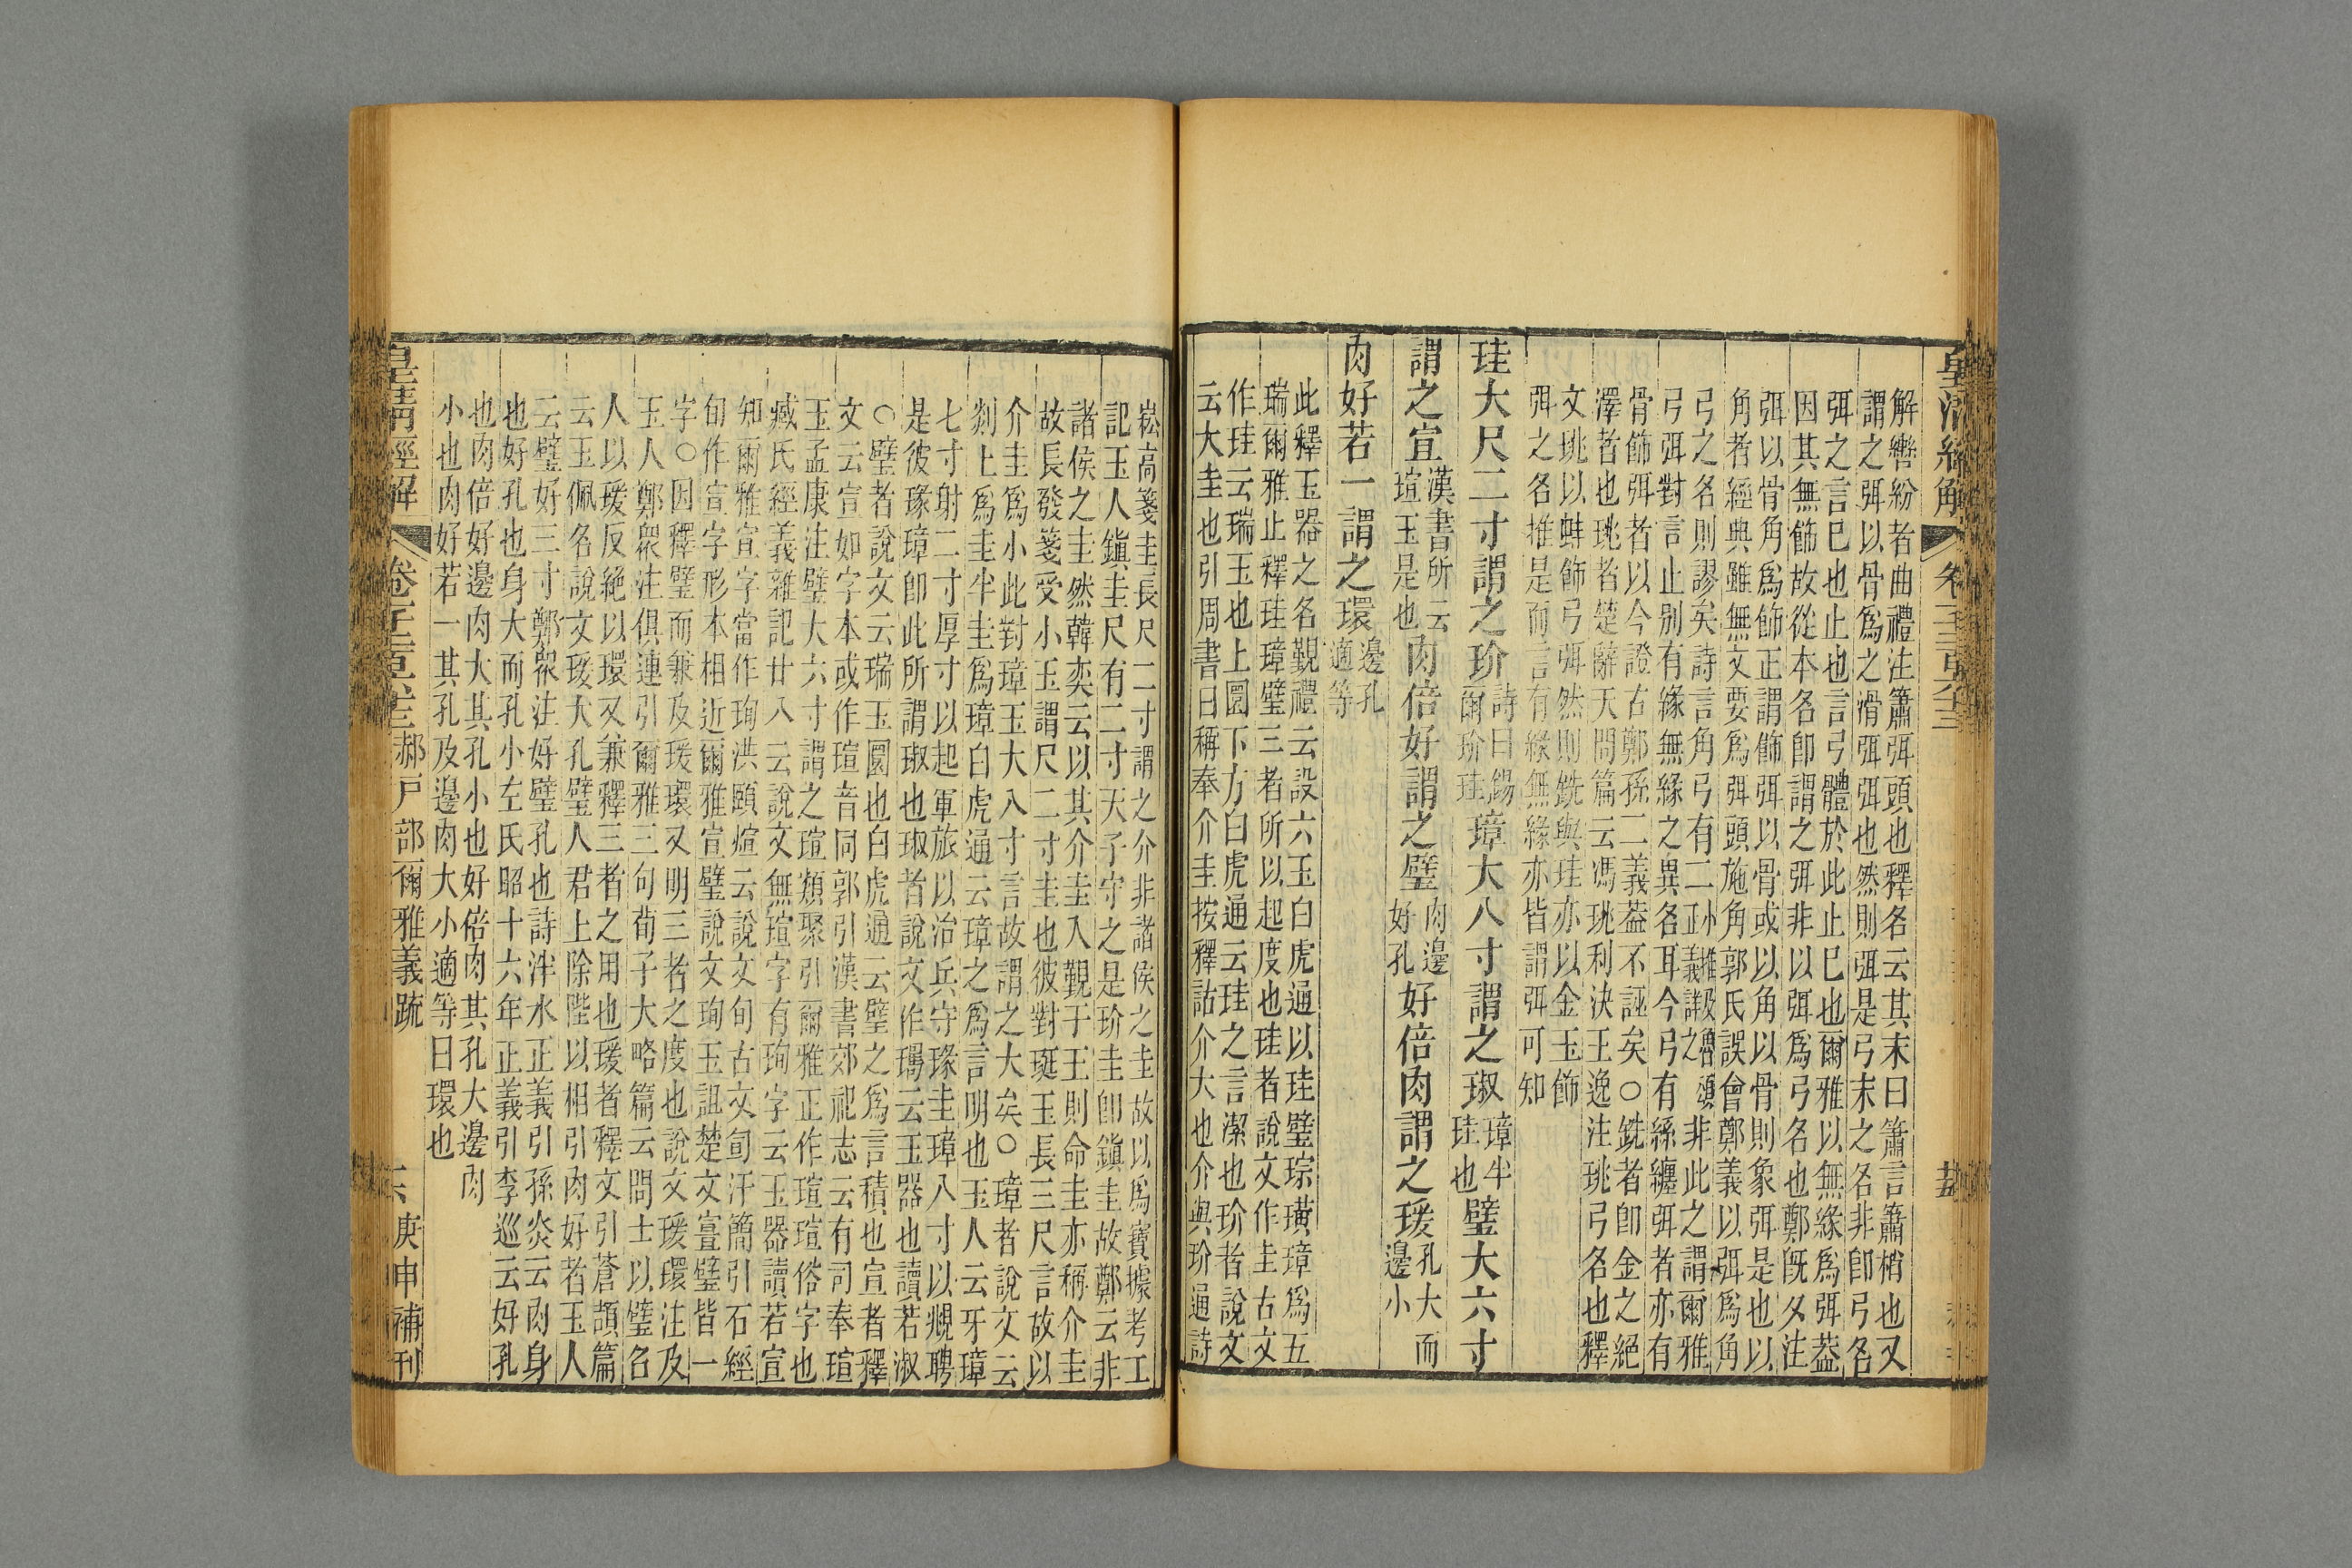 皇清經解
解轡紛者曲禮注簫弭頭也釋名云其末曰簫言簫梢也又
謂之弭以骨爲之滑弭弭也然則弭是弓末之名非卽弓名
弭之言已也止也言弓體於此止已也爾雅以無緣爲弭葢
因其無飾故從本名卽謂之弭非以弭爲弓名也鄭旣夕注
弭以骨角爲飾正謂飾弭以骨或以角以骨則象弭是也以
角者經典雖無文要爲弭頭施角郭氏誤會鄭義以弭爲角
弓之名則謬矣詩言角弓有二
非此之謂爾雅
弓弭對言止別有緣無緣之異名耳今弓有絲纏弭者亦有
骨飾弭者以今證古鄭孫二義葢不誣矣○銑者卽金之絕
澤者也珧者楚辭天問篇云馮珧利決王逸注珧弓名也釋
文珧以蚌飾弓弭然則銑與珪亦以金玉飾
弭之名推是而言有緣無緣亦皆謂弭可知
珪大尺二寸謂之玠詩曰錫爾玠珪璋大八寸謂之琡璋半珪也璧大六寸
謂之宣漢書所云瑄玉是也肉倍好謂之璧肉邊好孔好倍肉謂之瑗孔大而邊小
肉好若一謂之環邊孔適等
此釋玉器之名覲禮云設六玉白虎通以珪璧琮璜璋爲五
瑞爾雅止釋珪璋璧三者所以起度也珪者說文作圭古文
作珪云瑞玉也上圜下方白虎通云珪之言潔也玠者說文
云大圭也引周書曰稱奉介圭按釋詁介大也介與玠通詩
崧高箋圭長尺二寸謂之介非諸侯之圭故以爲寶據考工
記玉人鎭圭尺有二寸天子守之是玠圭卽鎭圭故鄭云非
諸侯之圭然韓奕云以其介圭入覲于王則命圭亦稱介圭
故長發箋受小玉謂尺二寸圭也彼對珽玉長三尺言故以
介圭爲小此對璋玉大八寸言故謂之大矣○璋者說文云
剡上爲圭半圭爲璋白虎通云璋之爲言明也玉人云牙璋
七寸射二寸厚寸以起軍旅以治兵守瑑圭璋八寸以覜聘
是彼瑑璋卽此所謂琡也琡者說文作璹云玉器也讀若淑
○璧者說文云瑞玉圜也白虎通云璧之爲言積也宣者釋
文云宣如字本或作瑄音同郭引漢書郊祀志云有司奉瑄
玉孟康注璧大六寸謂之瑄類聚引爾雅正作瑄瑄俗字也
臧氏經義雜記廿八云說文無瑄字有珣字云玉器讀若宣
知爾雅宣字當作珣洪頤煊云說文旬古文㫬汗簡引石經
旬作宣字形本相近爾雅宣璧說文珣玉詛楚文亶璧皆一
字○因釋璧而兼及瑗環又明三者之度也說文瑗環注及
玉人鄭衆注俱連引爾雅三句荀子大略篇云問士以璧召
人以瑗反絕以環又兼釋三者之用也瑗者釋文引蒼頡篇
云玉佩名說文瑗大孔璧人君上除陛以相引肉好者玉人
云璧好三寸鄭衆注好璧孔也詩泮水正義引孫炎云肉身
也好孔也身大而孔小左氏昭十六年正義引李巡云好孔
也肉倍好邊肉大其孔小也好倍肉其孔大邊肉
小也肉好若一其孔及邊肉大小適等曰環也
皇清經解
郝戶部爾雅義疏
庚申補刊